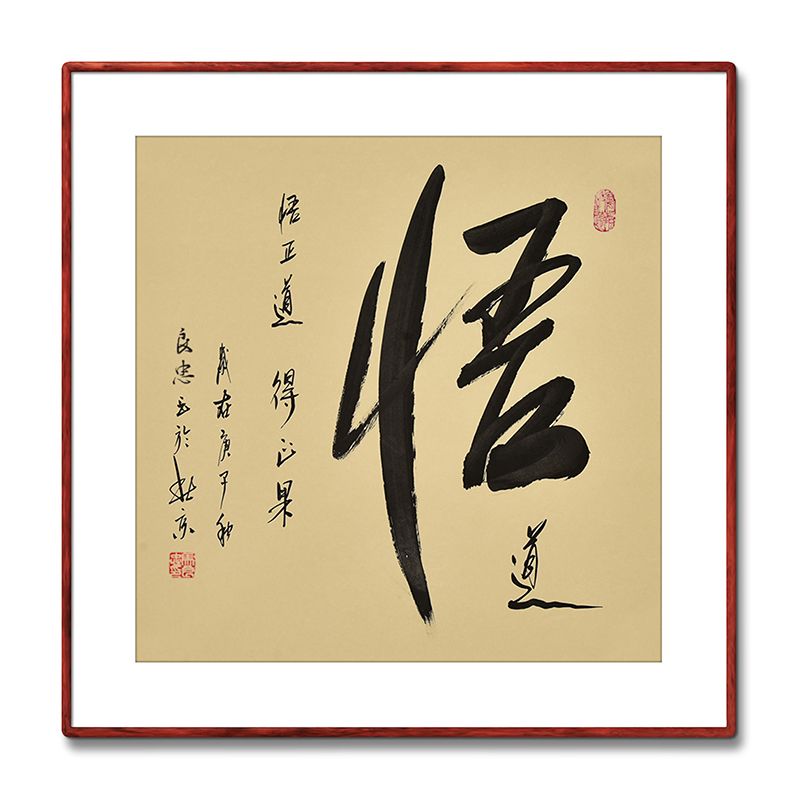 悟
道
悟正道 得正果
歲在庚子秋
良忠書於北京